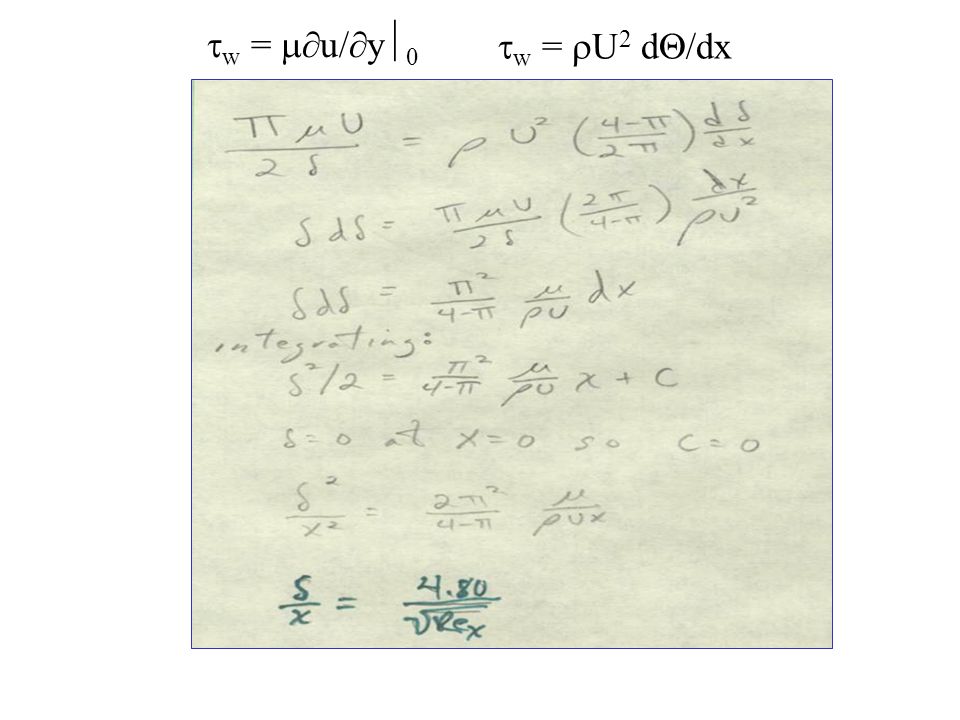 τw = μ∂u/∂y|0 τw = ρU² dΘ/dx
πμU / 2δ = ρU² (4-π / 2π) dδ/dx
δdδ = πμU / 2δ (2π / 4-π) dx / ρU²
δdδ = π² / 4-π μ / ρU dx
integrating:
δ²/2 = π² / 4-π μ / ρU x + C
δ=0 at x=0 so C=0
δ² / x² = 2π² / 4-π μ / ρUx
δ/x = 4.80 / √Rex